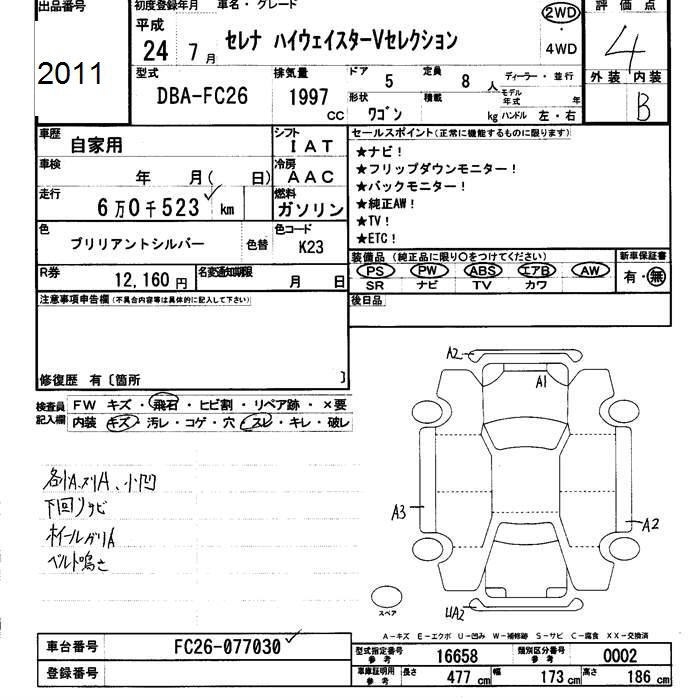 出品番号
初度登録年月 車名・グレード
評価点
平成
24 7 月
セレナ ハイウェイスターVセレクション
2WD
・
4WD
4
2011
型式
DBA-FC26
排気量
1997
cc
ドア 5 定員 8 人
形状 積載
ワゴン kg
ディーラー・並行
モデル年式 年
ハンドル 左・右
外装 内装
B
車歴 自家用
シフト IAT
車検 年 月( 日)
冷房 AAC
走行 6万0千523 km
燃料 ガソリン
色 ブリリアントシルバー 色替
色コード K23
R券 12,160円
名変通知期限 月 日
セールスポイント(正常に機能するものに限ります)
★ナビ!
★フリップダウンモニター!
★バックモニター!
★純正AW!
★TV!
★ETC!
装備品 (純正品に限り○をつけてください)
新車保証書
PS PW ABS エアB AW
SR ナビ TV カワ
有・無
後日品
注意事項申告欄(不具合内容等は具体的に記入して下さい)
修復歴 有〔箇所 〕
検査員記入欄
FW キズ・飛石・ヒビ割・リペア跡・×要
内装 キズ・汚レ・コゲ・穴・スレ・キレ・破レ
各リA、メリA、小凹
下回リサビ
ホイールガリA
ベルト鳴き
A2
A1
A3
A2
UA2
スペア
A-キズ E-エクボ U-凹み W-補修跡 S-サビ C-腐食 XX-交換済
車台番号 FC26-077030
登録番号
型式指定番号 参考 16658
類別区分番号 参考 0002
車庫証明用 参考 長さ 477 cm 幅 173 cm 高さ 186 cm